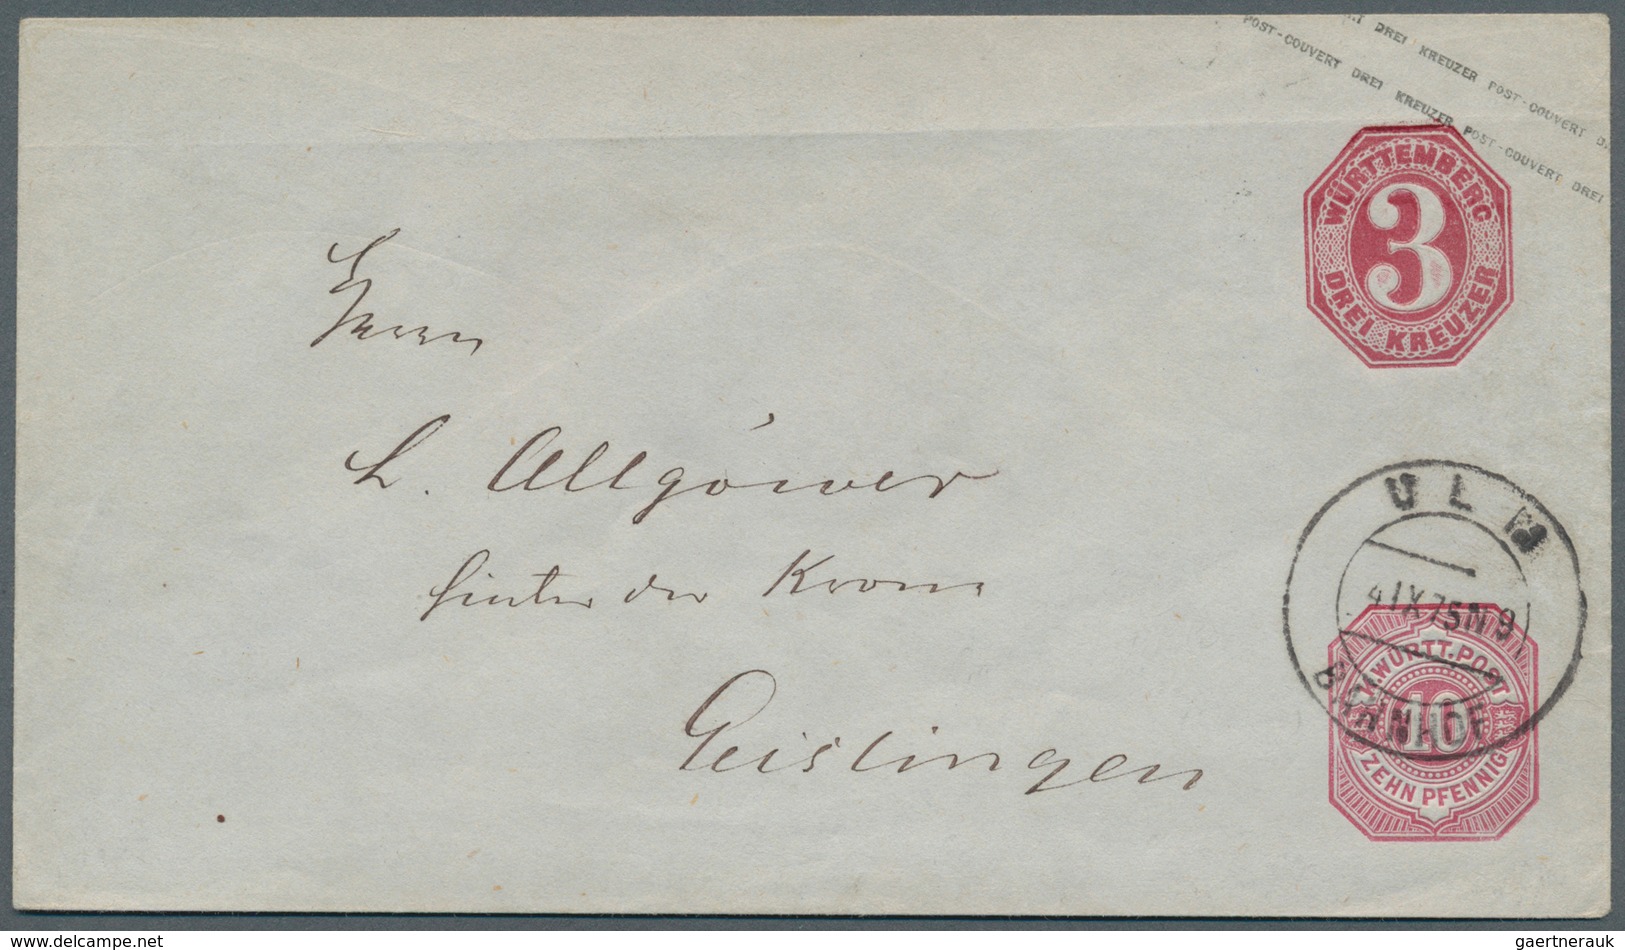 RT DREI KREUZER POST-COUVERT D
POST-COUVERT DREI KREUZER POST-COUVERT DREI
WÜRTTEMBERG
3
DREI KREUZER
Herrn
L. Allgöwer
hinter der Krone
Geislingen
ULM
4 IX 75 N 9
BAHNHOF
K. WÜRTT. POST
10
ZEHN PFENNIG
delcampe.net
gaertnerauk